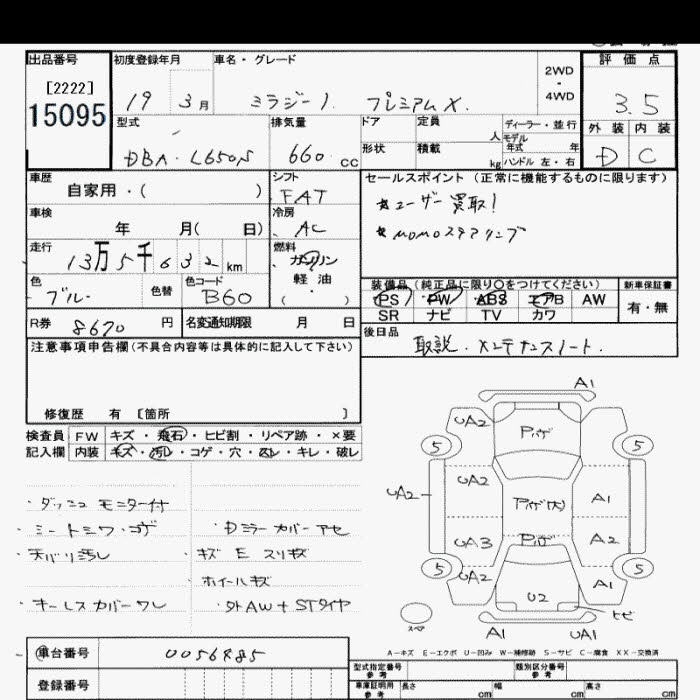 出品番号 初度登録年月 車名・グレード 2WD・4WD 評価点
[2222]
15095 19 3月 ミラジーノ プレミアムX 3.5
型式 排気量 ドア 定員 人 ディーラー・並行 外装 内装
モデル年式 年
DBA-L650S 660cc 形状 積載 kg ハンドル 左・右 D C
車歴 自家用・( ) シフト FAT セールスポイント (正常に機能するものに限ります)
車検 年 月( 日) 冷房 AC ★ユーザー買取!
★MOMOステアリング
走行 13万5千632km 燃料 ガソリン 軽油 ( )
色 ブルー 色替 色コード B60 装備品 (純正品に限り〇をつけてください) 新車保証書
PS PW ABS エアB AW 有・無
SR ナビ TV カワ
R券 8670円 名変通知期限 月 日 後日品
取説・メンテナンスノート.
注意事項申告欄(不具合内容等は具体的に記入して下さい)
修復歴 有 [箇所 ]
検査員 FW キズ・飛石・ヒビ割・リペア跡・×要
記入欄 内装 キズ・汚レ・コゲ・穴・スレ・キレ・破レ
・ダッシュ モニター付
・シートシワ・コゲ ・Dミラーカバーアセ
・天バリ汚レ ・キズ E スリキズ
・ホイールキズ
・キーレスカバーワレ ・外AW+STタイヤ
A1
UA2 Pバゲ
5 5
UA2 UA2 Pバゲ(大) A1
UA3 Pバゲ A2
5 5
UA2 U2 A1
ヒビ
スペア A1 UA1
A-キズ E-エクボ U-凹み W-補修跡 S-サビ C-腐食 XX-交換済
車台番号 0056985
登録番号
型式指定番号 参考 類別区分番号 参考
車庫証明用 参考 長さ cm 幅 cm 高さ cm